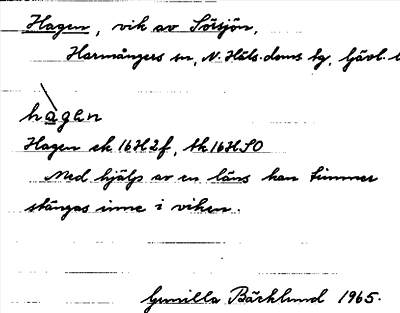 Hagen, vik av Sörsjön,
Harmångers sn, N. Häls. doms hg, Gävl. l
hagen
Hagen ek 16H2f, tk 16H SO
Med hjälp av en läns kan timmer
stängas inne i viken.
Gunilla Bäcklund 1965.